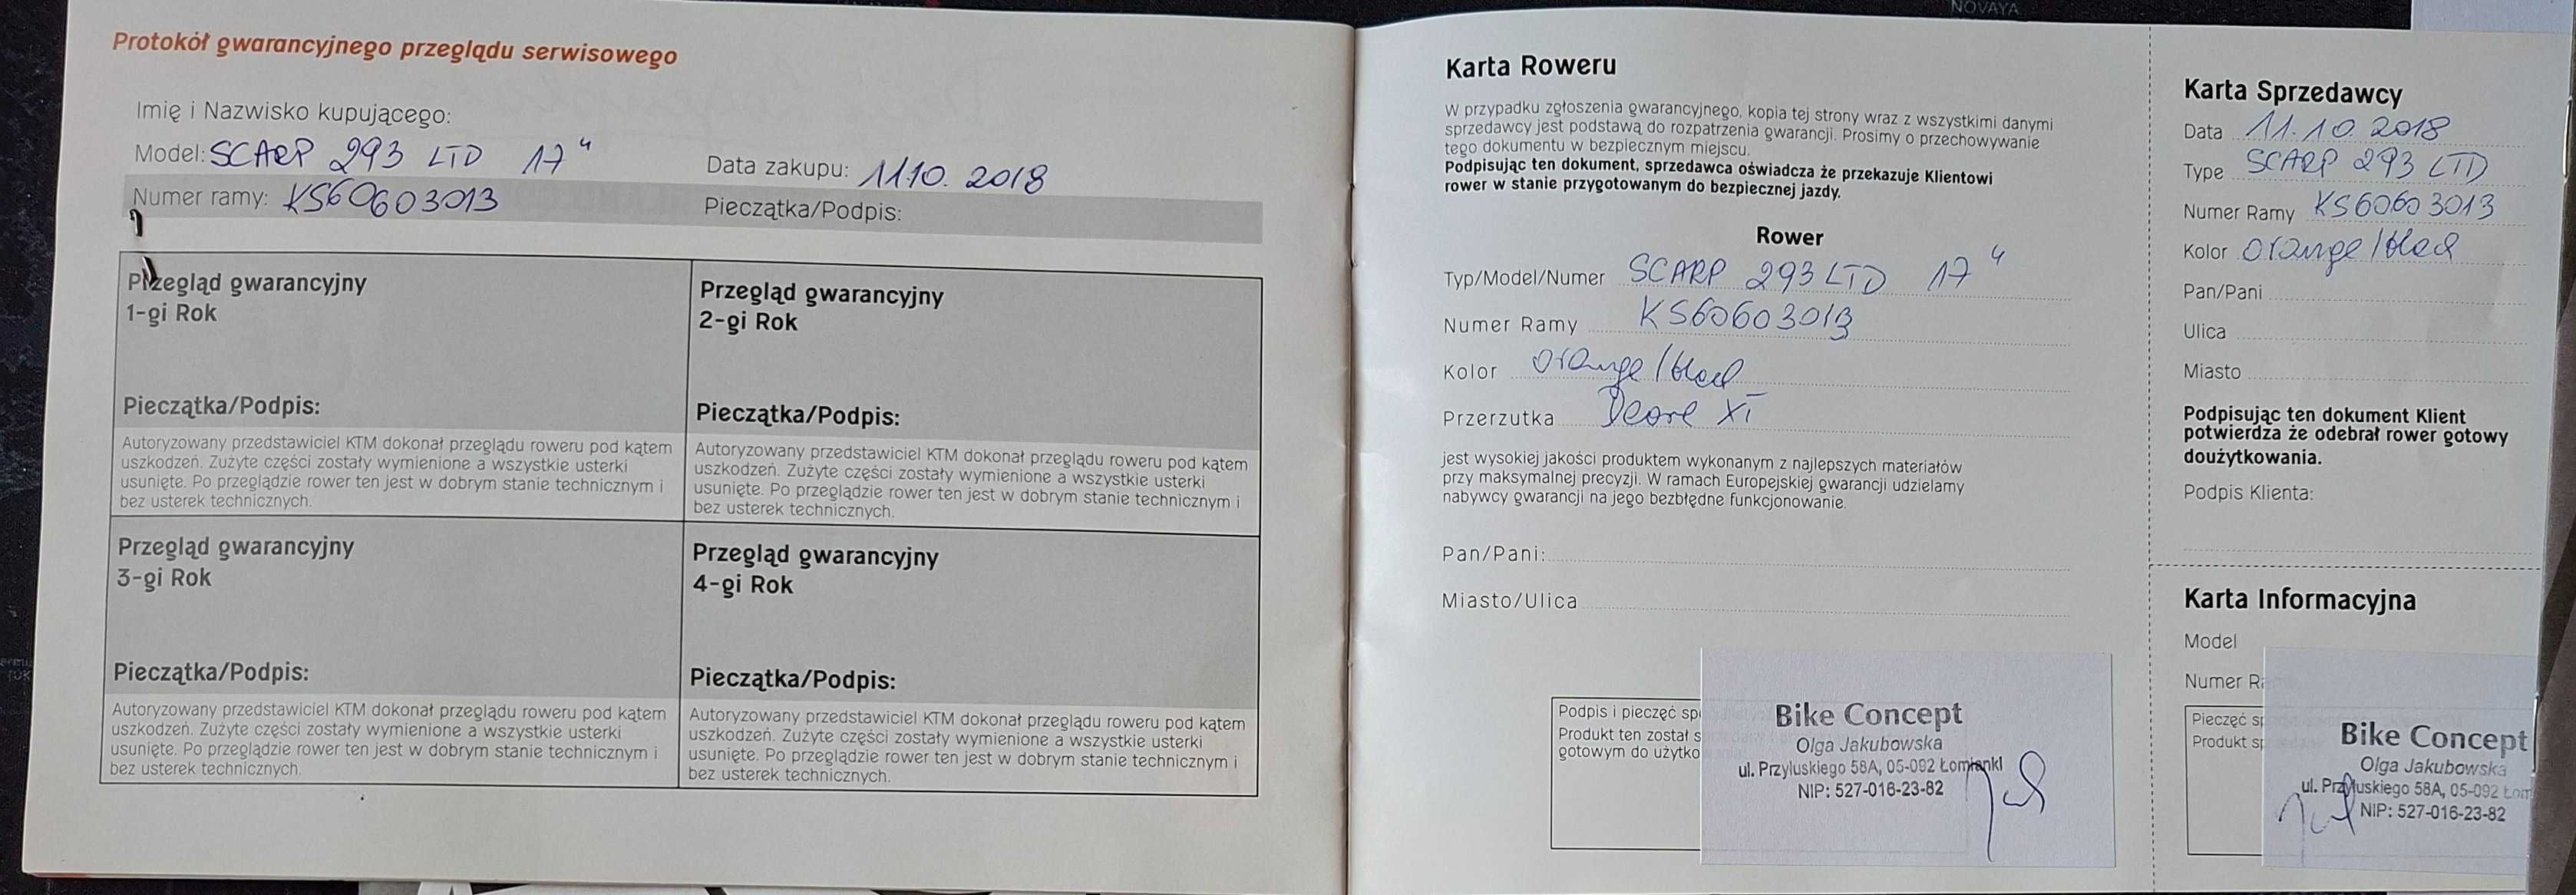 NOVAYA
Protokół gwarancyjnego przeglądu serwisowego
Imię i Nazwisko kupującego:
Model: SCARP 293 LTD 17"
Data zakupu: 11.10.2018
Numer ramy: KS60603013
Pieczątka/Podpis:
Przegląd gwarancyjny
1-gi Rok
Pieczątka/Podpis:
Autoryzowany przedstawiciel KTM dokonał przeglądu roweru pod kątem
uszkodzeń. Zużyte części zostały wymienione a wszystkie usterki
usunięte. Po przeglądzie rower ten jest w dobrym stanie technicznym i
bez usterek technicznych.
Przegląd gwarancyjny
2-gi Rok
Pieczątka/Podpis:
Autoryzowany przedstawiciel KTM dokonał przeglądu roweru pod kątem
uszkodzeń. Zużyte części zostały wymienione a wszystkie usterki
usunięte. Po przeglądzie rower ten jest w dobrym stanie technicznym i
bez usterek technicznych.
Przegląd gwarancyjny
3-gi Rok
Pieczątka/Podpis:
Autoryzowany przedstawiciel KTM dokonał przeglądu roweru pod kątem
uszkodzeń. Zużyte części zostały wymienione a wszystkie usterki
usunięte. Po przeglądzie rower ten jest w dobrym stanie technicznym i
bez usterek technicznych.
Przegląd gwarancyjny
4-gi Rok
Pieczątka/Podpis:
Autoryzowany przedstawiciel KTM dokonał przeglądu roweru pod kątem
uszkodzeń. Zużyte części zostały wymienione a wszystkie usterki
usunięte. Po przeglądzie rower ten jest w dobrym stanie technicznym i
bez usterek technicznych.
Karta Roweru
W przypadku zgłoszenia gwarancyjnego, kopia tej strony wraz z wszystkimi danymi
sprzedawcy jest podstawą do rozpatrzenia gwarancji. Prosimy o przechowywanie
tego dokumentu w bezpiecznym miejscu.
Podpisując ten dokument, sprzedawca oświadcza że przekazuje Klientowi
rower w stanie przygotowanym do bezpiecznej jazdy.
Rower
Typ/Model/Numer SCARP 293 LTD 17"
Numer Ramy KS60603013
Kolor orange/black
Przerzutka Deore XT
jest wysokiej jakości produktem wykonanym z najlepszych materiałów
przy maksymalnej precyzji. W ramach Europejskiej gwarancji udzielamy
nabywcy gwarancji na jego bezbłędne funkcjonowanie.
Pan/Pani:
Miasto/Ulica
Podpis i pieczęć
Produkt ten został
gotowym do
Bike Concept
Olga Jakubowska
ul. Przyluskiego 58A, 05-092 Łomianki
NIP: 527-016-23-82
Karta Sprzedawcy
Data 11.10.2018
Type SCARP 293 LTD
Numer Ramy KS60603013
Kolor orange/black
Pan/Pani
Ulica
Miasto
Podpisując ten dokument Klient
potwierdza że odebrał rower gotowy
doużytkowania.
Podpis Klienta:
Karta Informacyjna
Model
Numer
Pieczęć
Produkt
Bike Concept
Olga Jakubowska
ul. Przyluskiego 58A, 05-092 Łom
NIP: 527-016-23-82